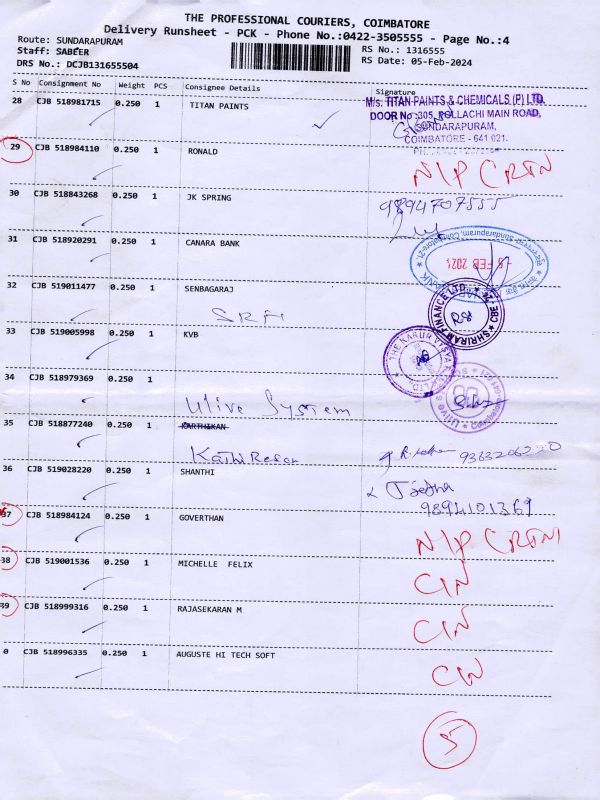 THE PROFESSIONAL COURIERS, COIMBATORE
Delivery Runsheet - PCK - Phone No.:0422-3505555 - Page No.:4
Route: SUNDARAPURAM
RS No.: 1316555
Staff: SABEER
RS Date: 05-Feb-2024
DRS No.: DCJB131655504
S No Consignment No Weight PCS Consignee Details Signature
28 CJB 518981715 0.250 1 TITAN PAINTS
M/s. TITAN PAINTS & CHEMICALS (P) LTD.
DOOR No :305, POLLACHI MAIN ROAD,
SUNDARAPURAM,
COIMBATORE - 641 021.
29 CJB 518984110 0.250 1 RONALD N/P CRTN
30 CJB 518843268 0.250 1 JK SPRING 9894707555
31 CJB 518920291 0.250 1 CANARA BANK
FEB 2024
32 CJB 519011477 0.250 1 SENBAGARAJ
SHRIRAM FINANCE LTD. CBE
33 CJB 519005998 0.250 1 KVB
34 CJB 518979369 0.250 1
Ulive System
35 CJB 518877240 0.250 1 KARTHIKAN
9363206220
36 CJB 519028220 0.250 1 SHANTHI
9894101369
37 CJB 518984124 0.250 1 GOVERTHAN N/P CRTN
38 CJB 519001536 0.250 1 MICHELLE FELIX C/N
39 CJB 518999316 0.250 1 RAJASEKARAN M C/N
0 CJB 518996335 0.250 1 AUGUSTE HI TECH SOFT
5